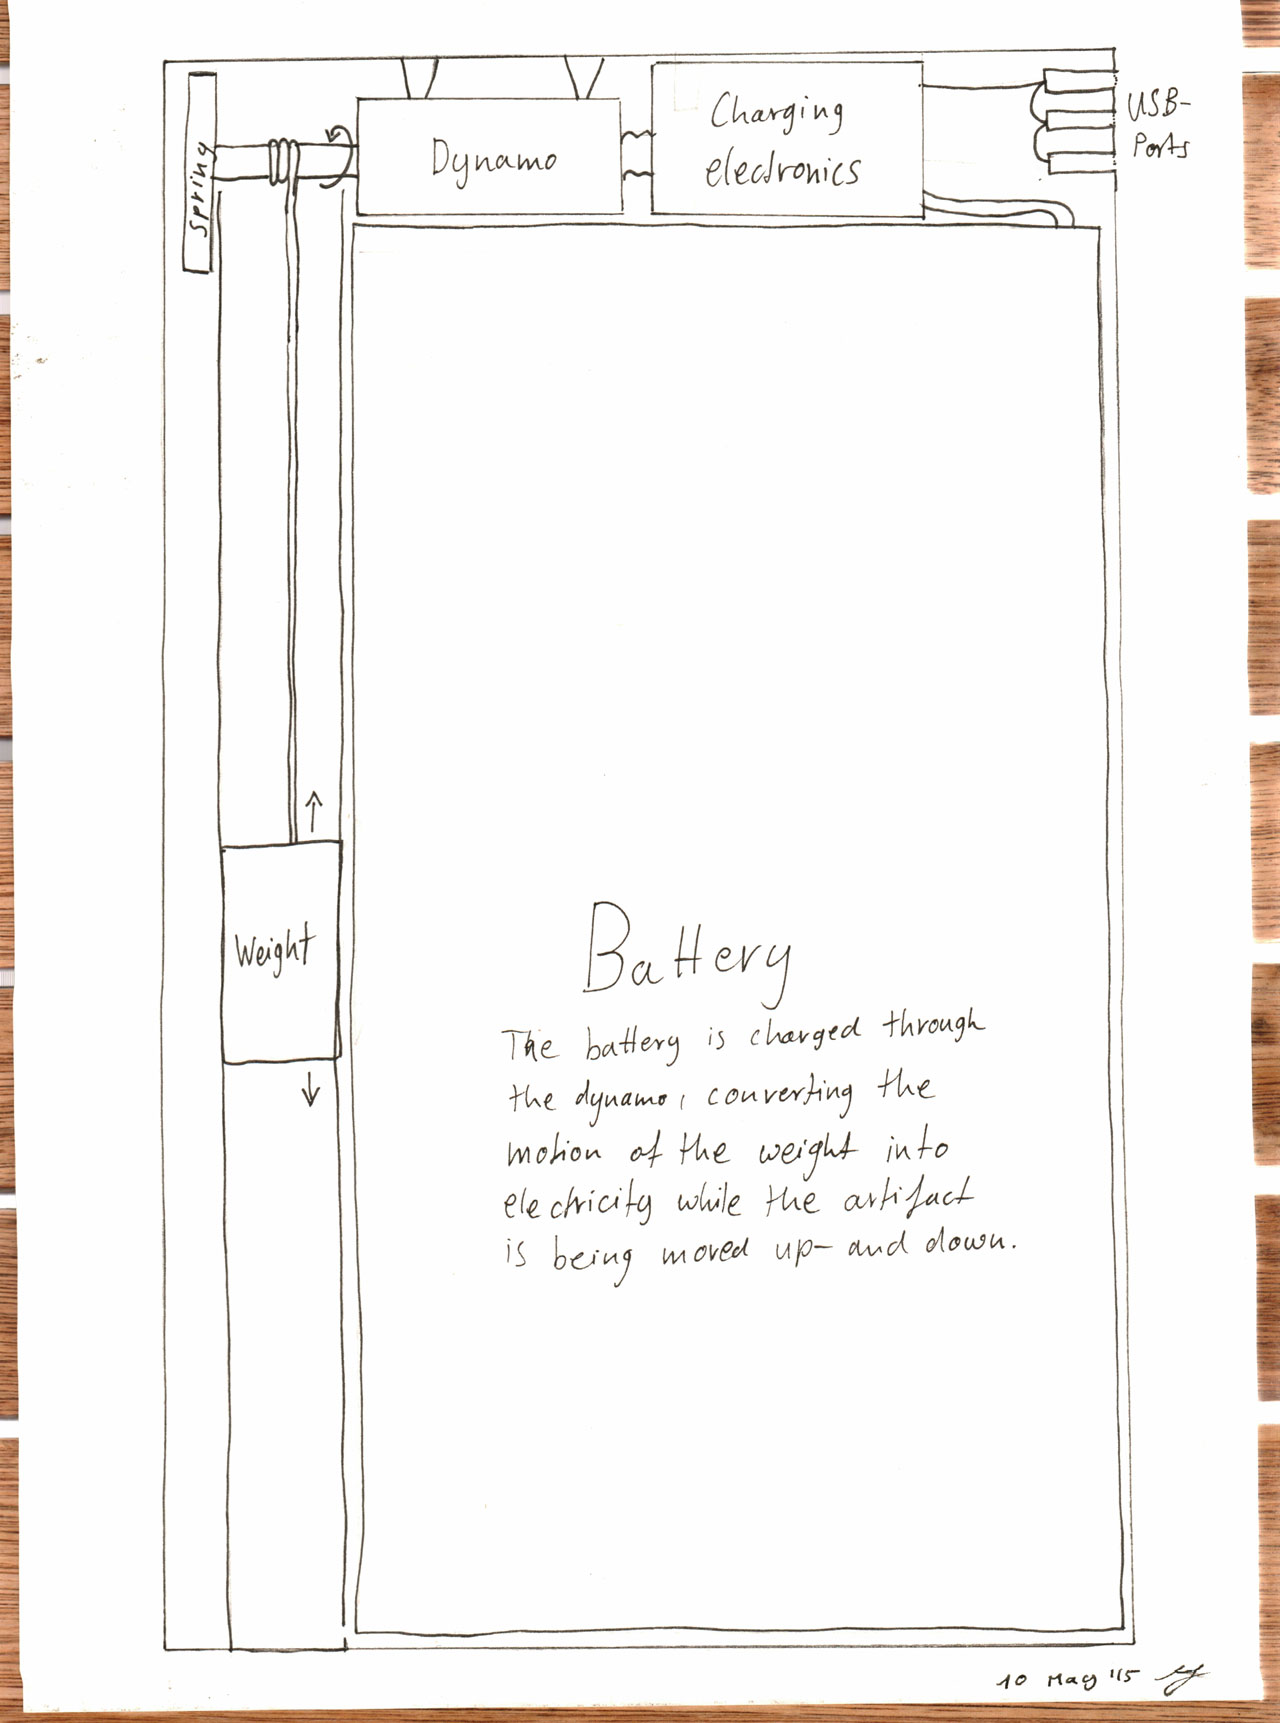 Spring
Dynamo
Charging
electronics
USB-
Ports
Weight
Battery
The battery is charged through
the dynamo, converting the
motion of the weight into
electricity while the artifact
is being moved up- and down.
10 May '15